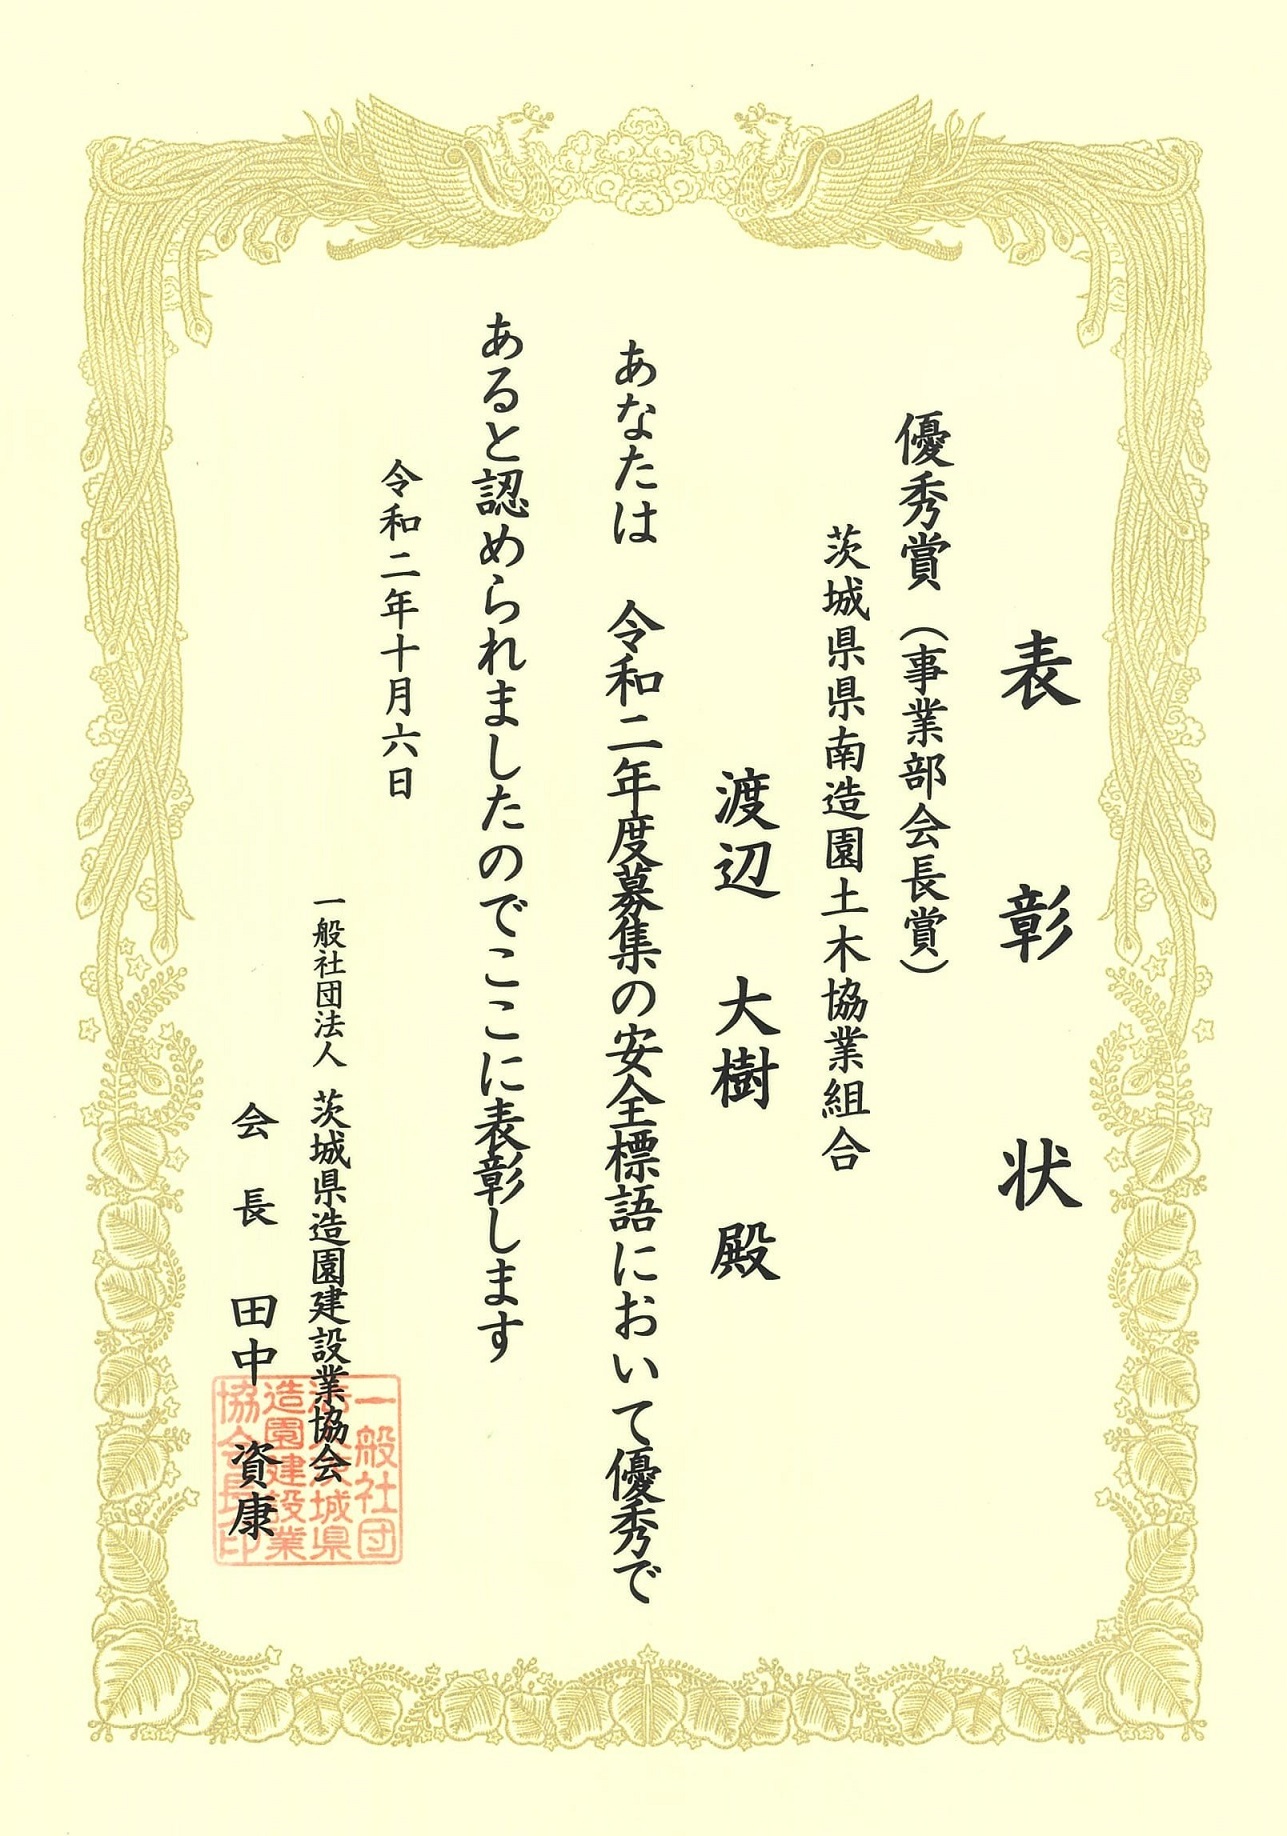 表彰状
優秀賞（事業部会長賞）
茨城県県南造園土木協業組合
渡辺　大樹　殿
あなたは　令和二年度募集の安全標語において優秀で
あると認められましたのでここに表彰します
令和二年十月六日
一般社団法人　茨城県造園建設業協会
会長　田中　資康
一般社団
法人茨城県
造園建設業
協会長之印